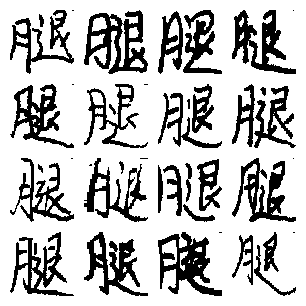 腿腿腿腿
腿腿腿腿
腿腿腿腿
腿腿腿腿